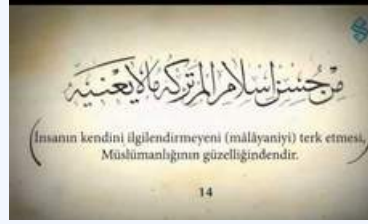 من حسن إسلام المرء تركه ما لا يعنيه
(İnsanın kendini ilgilendirmeyeni (mâlâyaniyi) terk etmesi,
Müslümanlığının güzelliğindendir.)
14